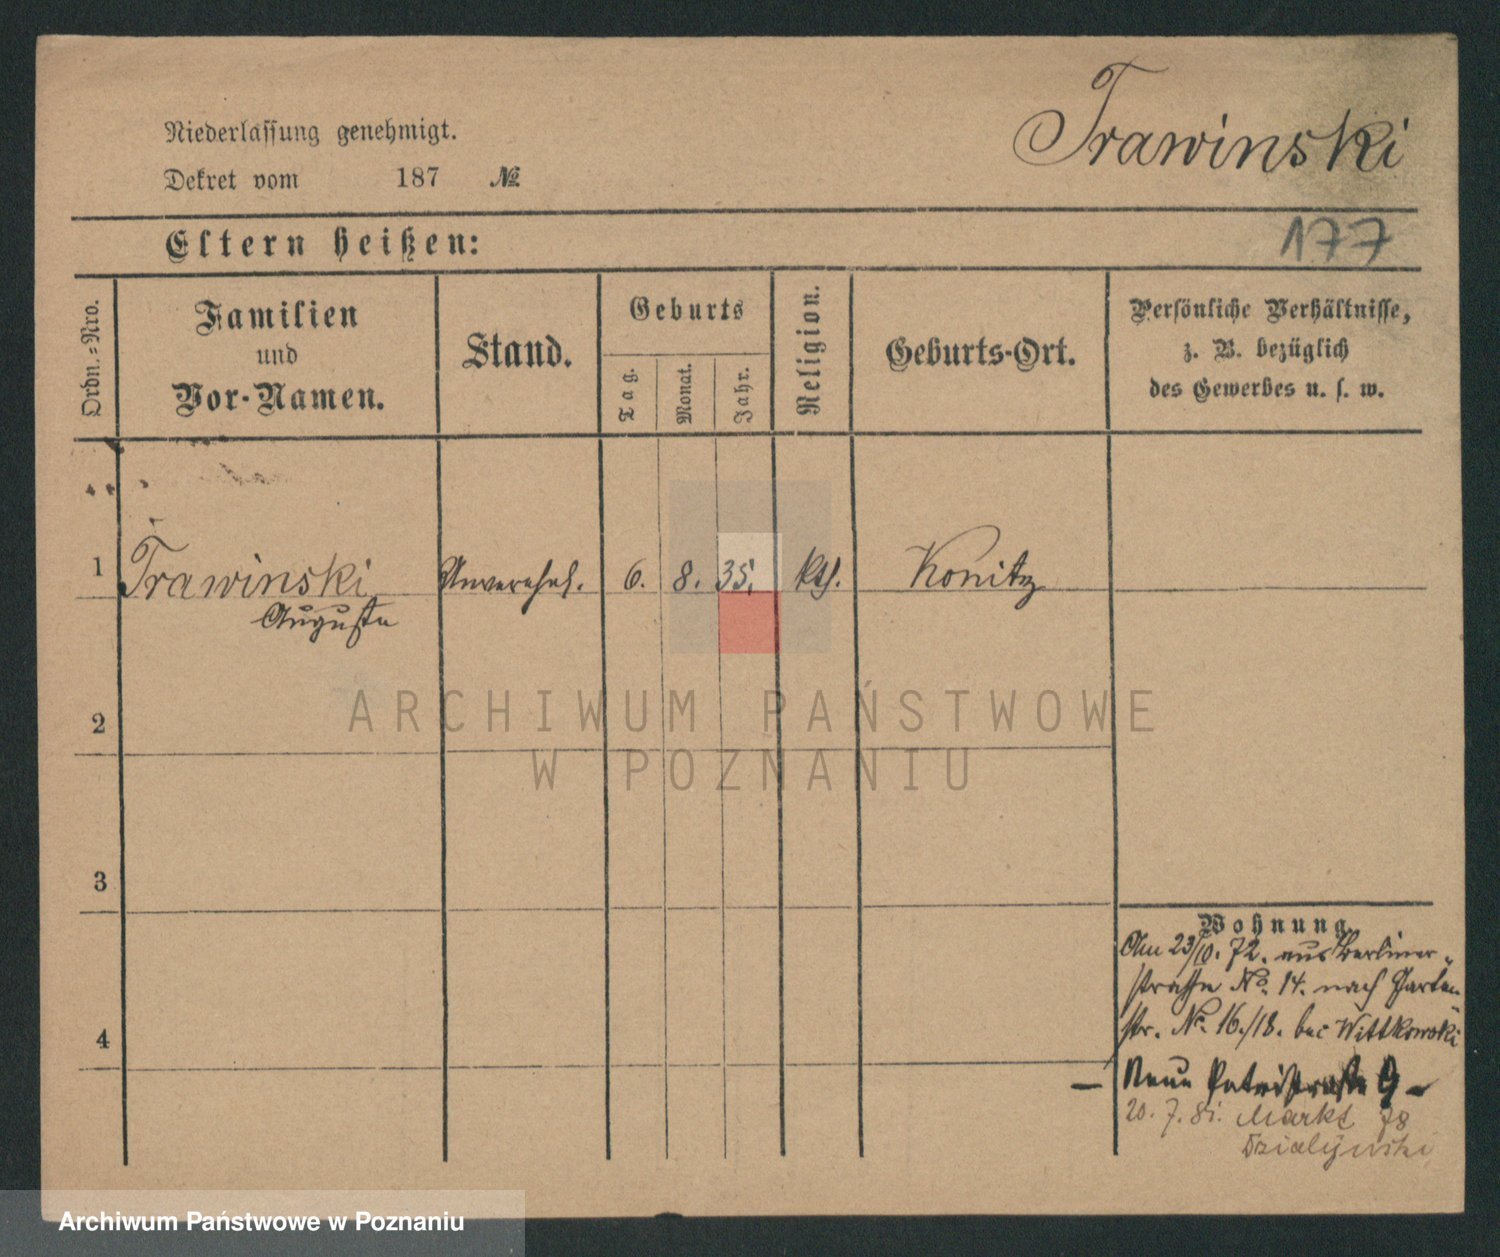 Trawinski
Niederlassung genehmigt.
Dekret vom 187 №
177
Eltern heißen:
Ordn.-Nro.
Familien
und
Vor-Namen.
Stand.
Geburts
Tag.
Monat.
Jahr.
Religion.
Geburts-Ort.
Persönliche Verhältnisse,
z. B. bezüglich
des Gewerbes u. s. w.
1 Trawinski Unverehel. 6. 8. 35. kth. Konitz
Auguste
2
3
4
Wohnung.
Am 23/10. 72. aus Berliner-
straße No. 14. nach Garten
str. No. 16./18. bei Wittkowski
— Neue 9 —
20. 7. 81. Markt 78
Dzialynski
ARCHIWUM PAŃSTWOWE
W POZNANIU
Archiwum Państwowe w Poznaniu